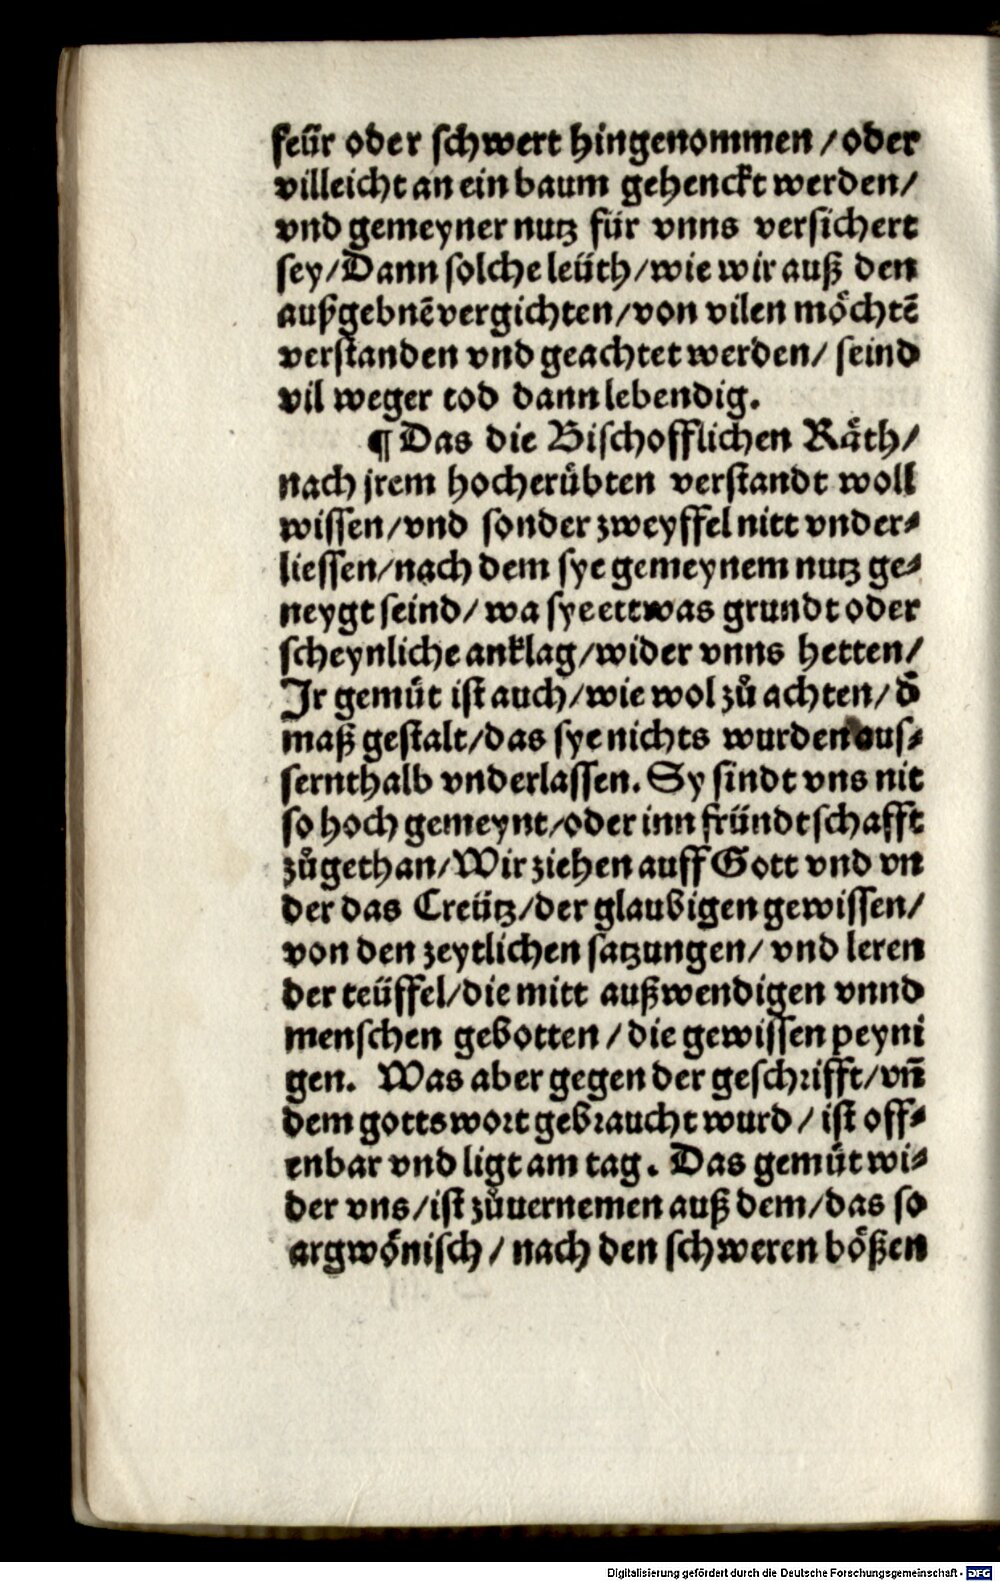 feür oder schwert hingenommen / oder
villeicht an ein baum gehenckt werden/
vnd gemeyner nutz für vnns versichert
sey/Dann solche leüth/wie wir auß den
außgebnē vergichten/von vilen möchtē
verstanden vnd geachtet werden/ seind
vil weger tod dann lebendig.
¶ Das die Bischofflichen Räth/
nach jrem hocherübten verstandt woll
wissen/vnd sonder zweyffel nitt vnder⸗
liessen/nach dem sye gemeynem nutz ge⸗
neygt seind/ wa sye ettwas grundt oder
scheynliche anklag/wider vnns hetten/
Ir gemüt ist auch/wie wol zů achten/ d̄
maß gestalt/das sye nichts wurden aus⸗
sernthalb vnderlassen. Sy sindt vns nit
so hoch gemeynt/oder inn fründtschafft
zůgethan/Wir ziehen auff Gott vnd vn
der das Creütz/der glaubigen gewissen/
von den zeytlichen satzungen/ vnd leren
der teüffel/die mitt außwendigen vnnd
menschen gebotten / die gewissen peyni
gen. Was aber gegen der geschrifft/vn̄
dem gottswort gebraucht wurd / ist off⸗
enbar vnd ligt am tag. Das gemüt wi⸗
der vns/ist zůuernemen auß dem/das so
argwönisch / nach den schweren bößen
Digitalisierung gefördert durch die Deutsche Forschungsgemeinschaft - DFG